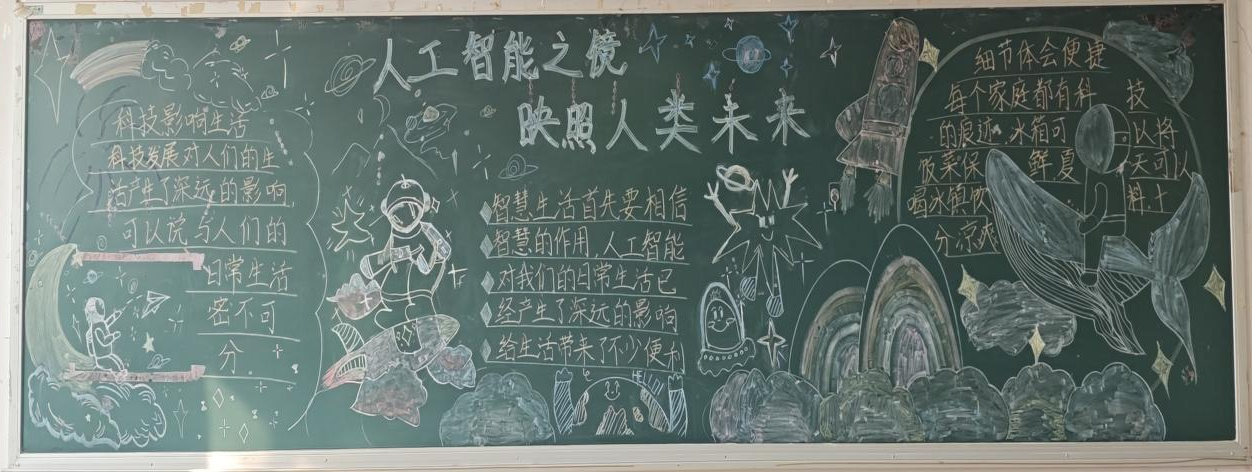 人工智能之镜
映照人类未来
科技影响生活
科技发展对人们的生
活产生了深远的影响
可以说与人们的
日常生活
密不可
分
智慧生活首先要相信
智慧的作用,人工智能
对我们的日常生活已
经产生了深远的影响
给生活带来了不少便利
细节体会便捷
每个家庭都有科 技
的痕迹 冰箱可 以将
饭菜保 鲜 夏 天可以
喝冰镇饮 料十
分凉爽